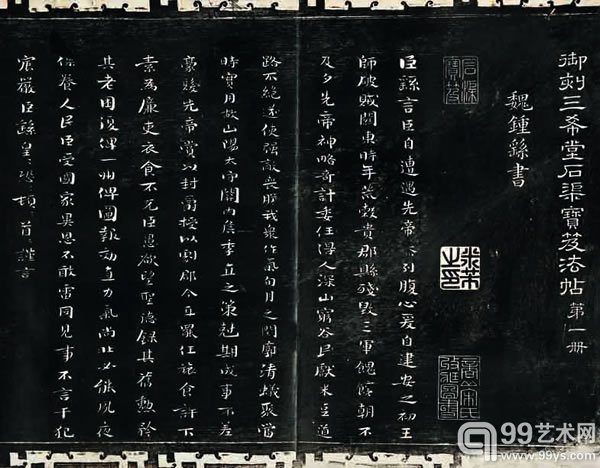 御刻三希堂石渠寶笈法帖第一冊
魏鍾繇書
臣繇言臣自遭遇先帝忝列腹心爰自建安之初王
師破賊關東時年荒穀貴郡縣殘毀三軍餽饟朝不
及夕先帝神略奇計委任得人深山窮谷民獻米豆道
路不絕遂使強敵喪膽我衆作氣旬月之間廓清蟻聚當
時實用故山陽太守關內侯季直之策剋期成事不差
豪髮先帝賞以封爵授以劇郡今直罷任旅食許下
素為廉吏衣食不充臣愚欲望聖德錄其舊勳矜
其老困復俾一州俾圖報效直力氣尚壯必能夙夜
保養人民臣受國家異恩不敢雷同見事不言干犯
宸嚴臣繇皇恐頓首謹言
石渠
寶笈
99艺术网
www.99ys.com